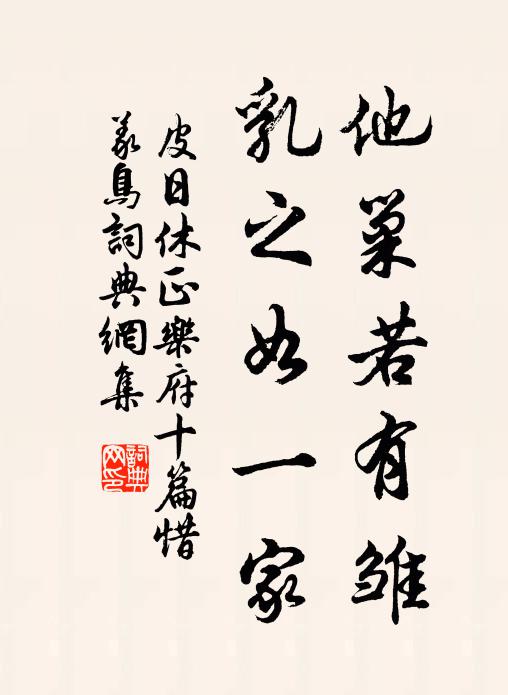 他巢若有雏
乳之如一家
皮日休正樂府十篇惜
義鳥詞典網集
詞典网印